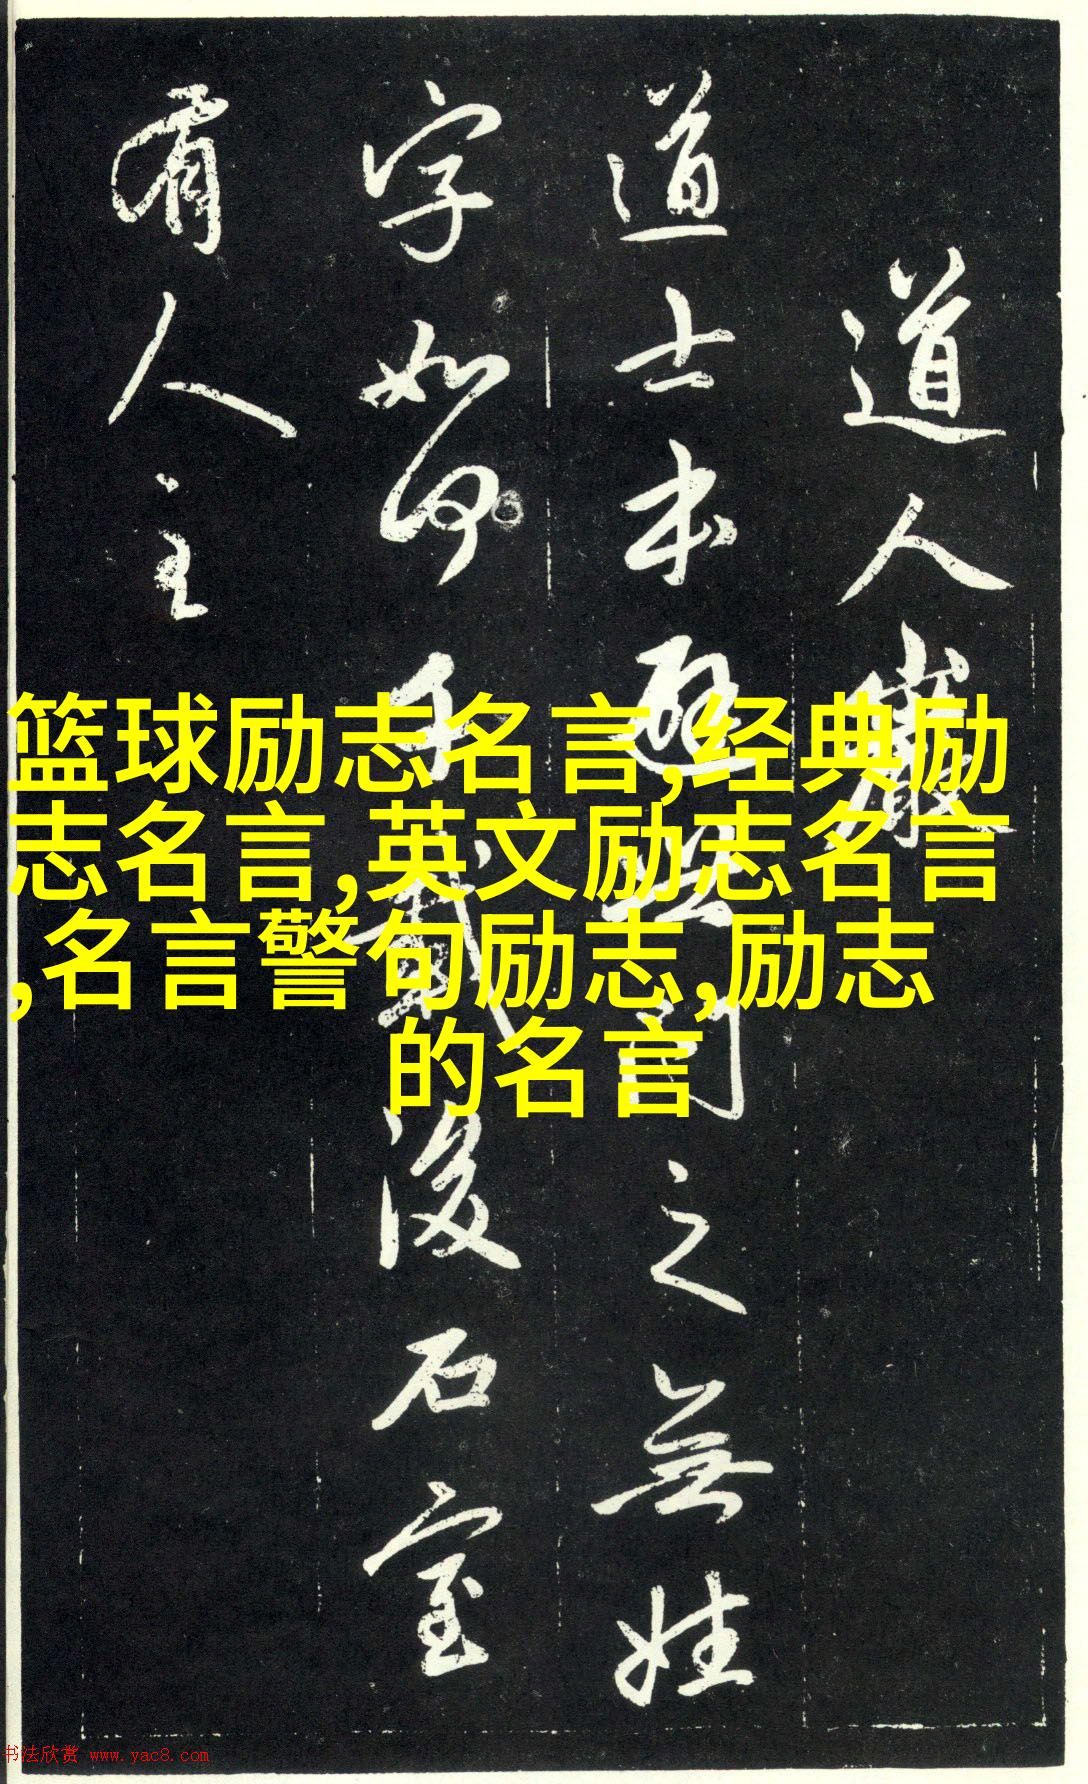 道人巖
道士本避世問之無姓
字如何千載後石室
有人主
篮球励志名言,经典励
志名言,英文励志名言
,名言警句励志,励志
的名言
书法欣赏 www.yac8.com